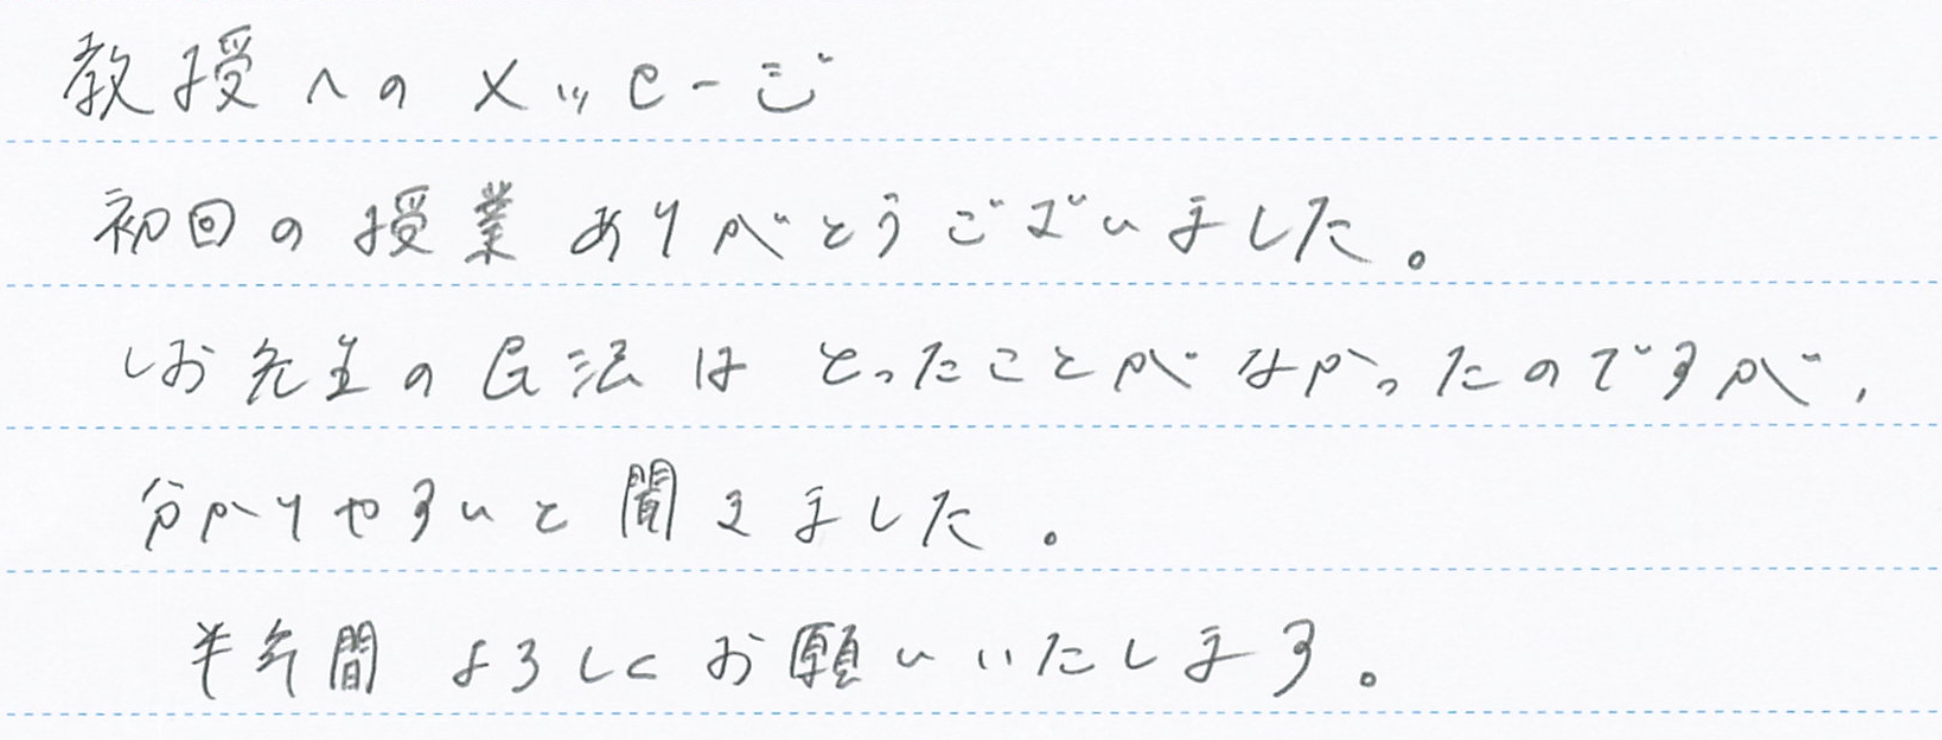 教授へのメッセージ
初回の授業ありがとうございました。
先生の民法はとったことがなかったのですが,
分かりやすいと聞きました。
半年間よろしくお願いいたします。